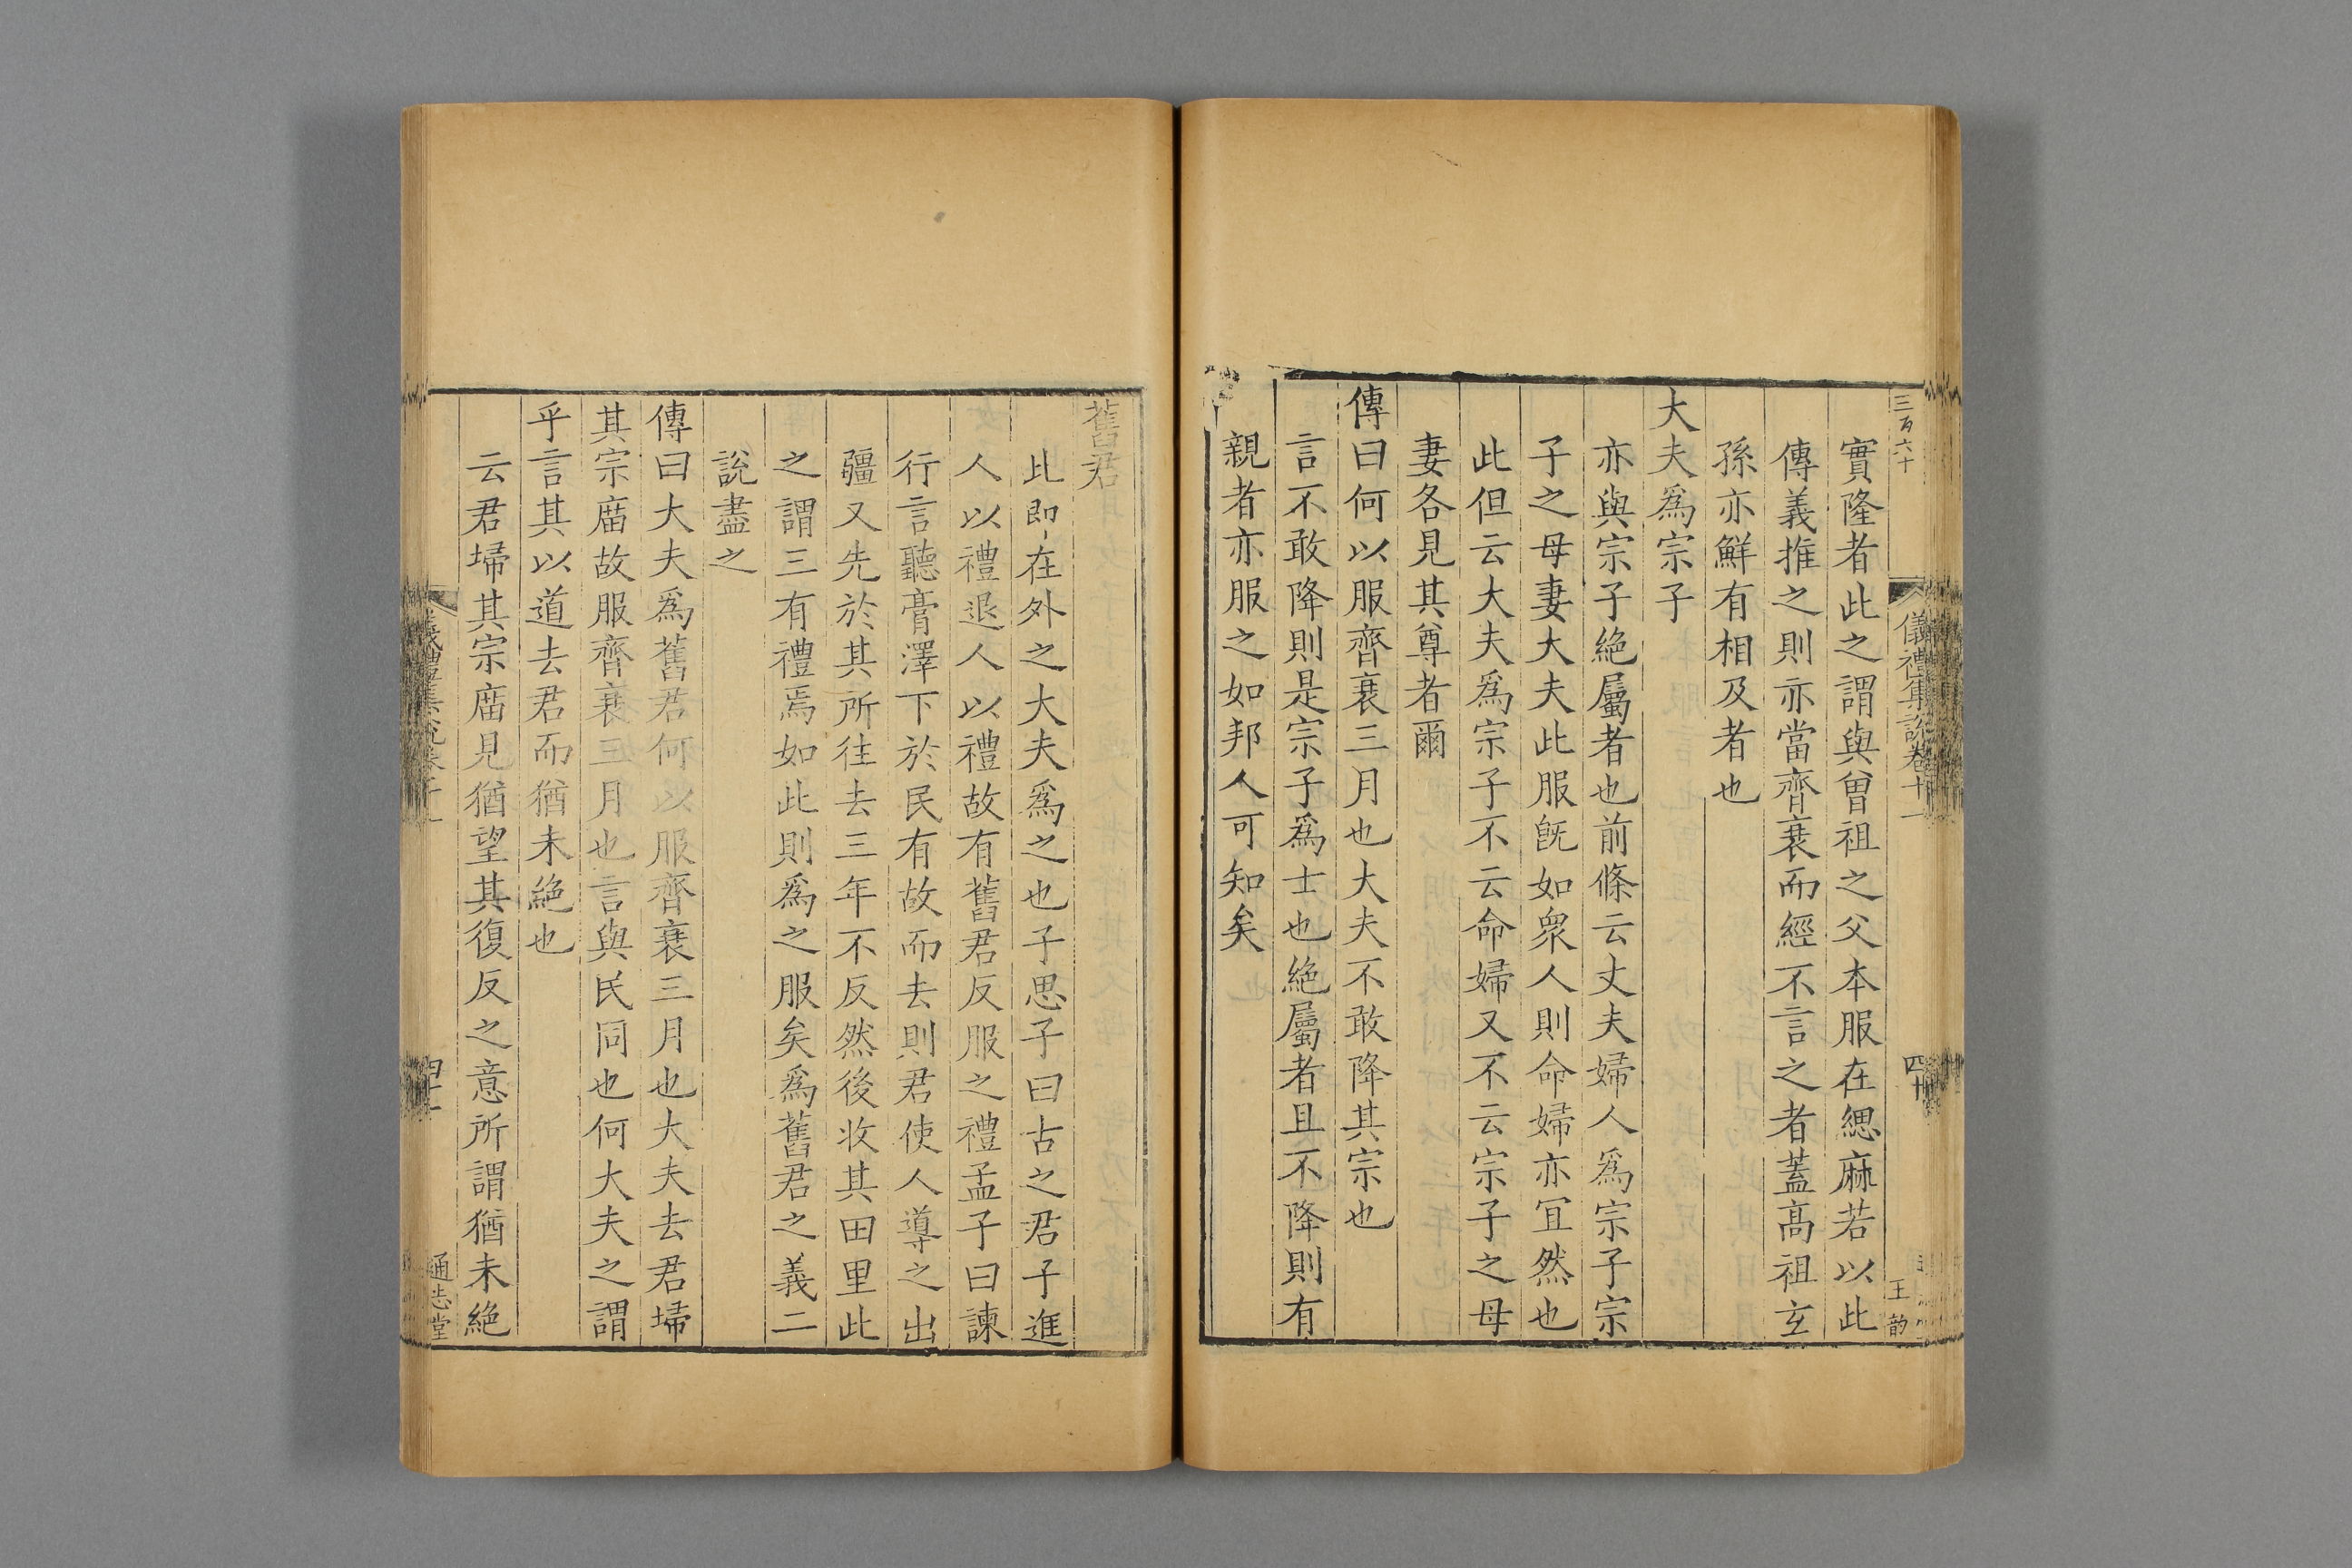 三百六十
儀禮集說卷十一
四十
王韵
實隆者此之謂與曾祖之父本服在緦麻若以此
傳義推之則亦當齊衰而經不言之者蓋高祖玄
孫亦鮮有相及者也
大夫爲宗子
亦與宗子絶屬者也前條云丈夫婦人爲宗子宗
子之母妻大夫此服旣如衆人則命婦亦冝然也
此但云大夫爲宗子不云命婦又不云宗子之母
妻各見其尊者爾
傳曰何以服齊衰三月也大夫不敢降其宗也
言不敢降則是宗子爲士也絶屬者且不降則有
親者亦服之如邦人可知矣
舊君
此即在外之大夫爲之也子思子曰古之君子進
人以禮退人以禮故有舊君反服之禮孟子曰諫
行言聽膏澤下於民有故而去則君使人導之出
疆又先於其所往去三年不反然後收其田里此
之謂三有禮焉如此則爲之服矣爲舊君之義二
說盡之
傳曰大夫爲舊君何以服齊衰三月也大夫去君埽
其宗庿故服齊衰三月也言與民同也何大夫之謂
乎言其以道去君而猶未絶也
云君埽其宗庿見猶望其復反之意所謂猶未絶
儀禮集說卷十一
四十一
通志堂